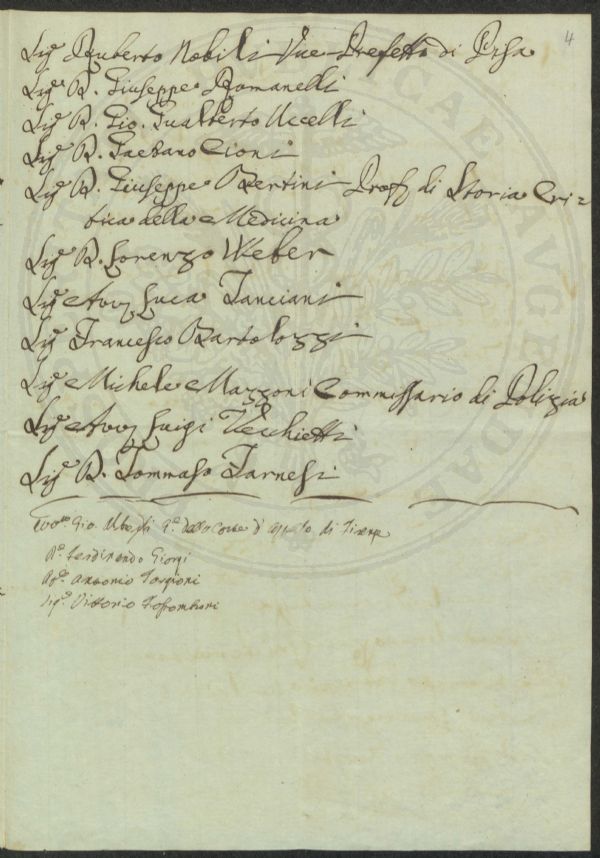 4
Sig.e Ruberto Nobili Vice-Prefetto di Pisa
Sig.e D. Giuseppe Romanelli
Sig.e D. Gio. Gualberto Uccelli
Sig.e D. Gaetano Cioni
Sig.e D. Giuseppe Bertini Prof. di Storia Cri=
tica della Medicina
Sig.e D. Lorenzo Weber
Sig.e Avv. Luca Tanciani
Sig.e Francesco Bartolozzi
Sig.e Michele Mazzoni Commissario di Polizia
Sig.e Avv. Luigi Vecchietti
Sig.e D. Tommaso Farnesi
Gio. della Corte d'App.lo di Firenze
D.e Ferdinando Giorgi
Antonio Targioni
Sig.e Vittorio Fossombroni